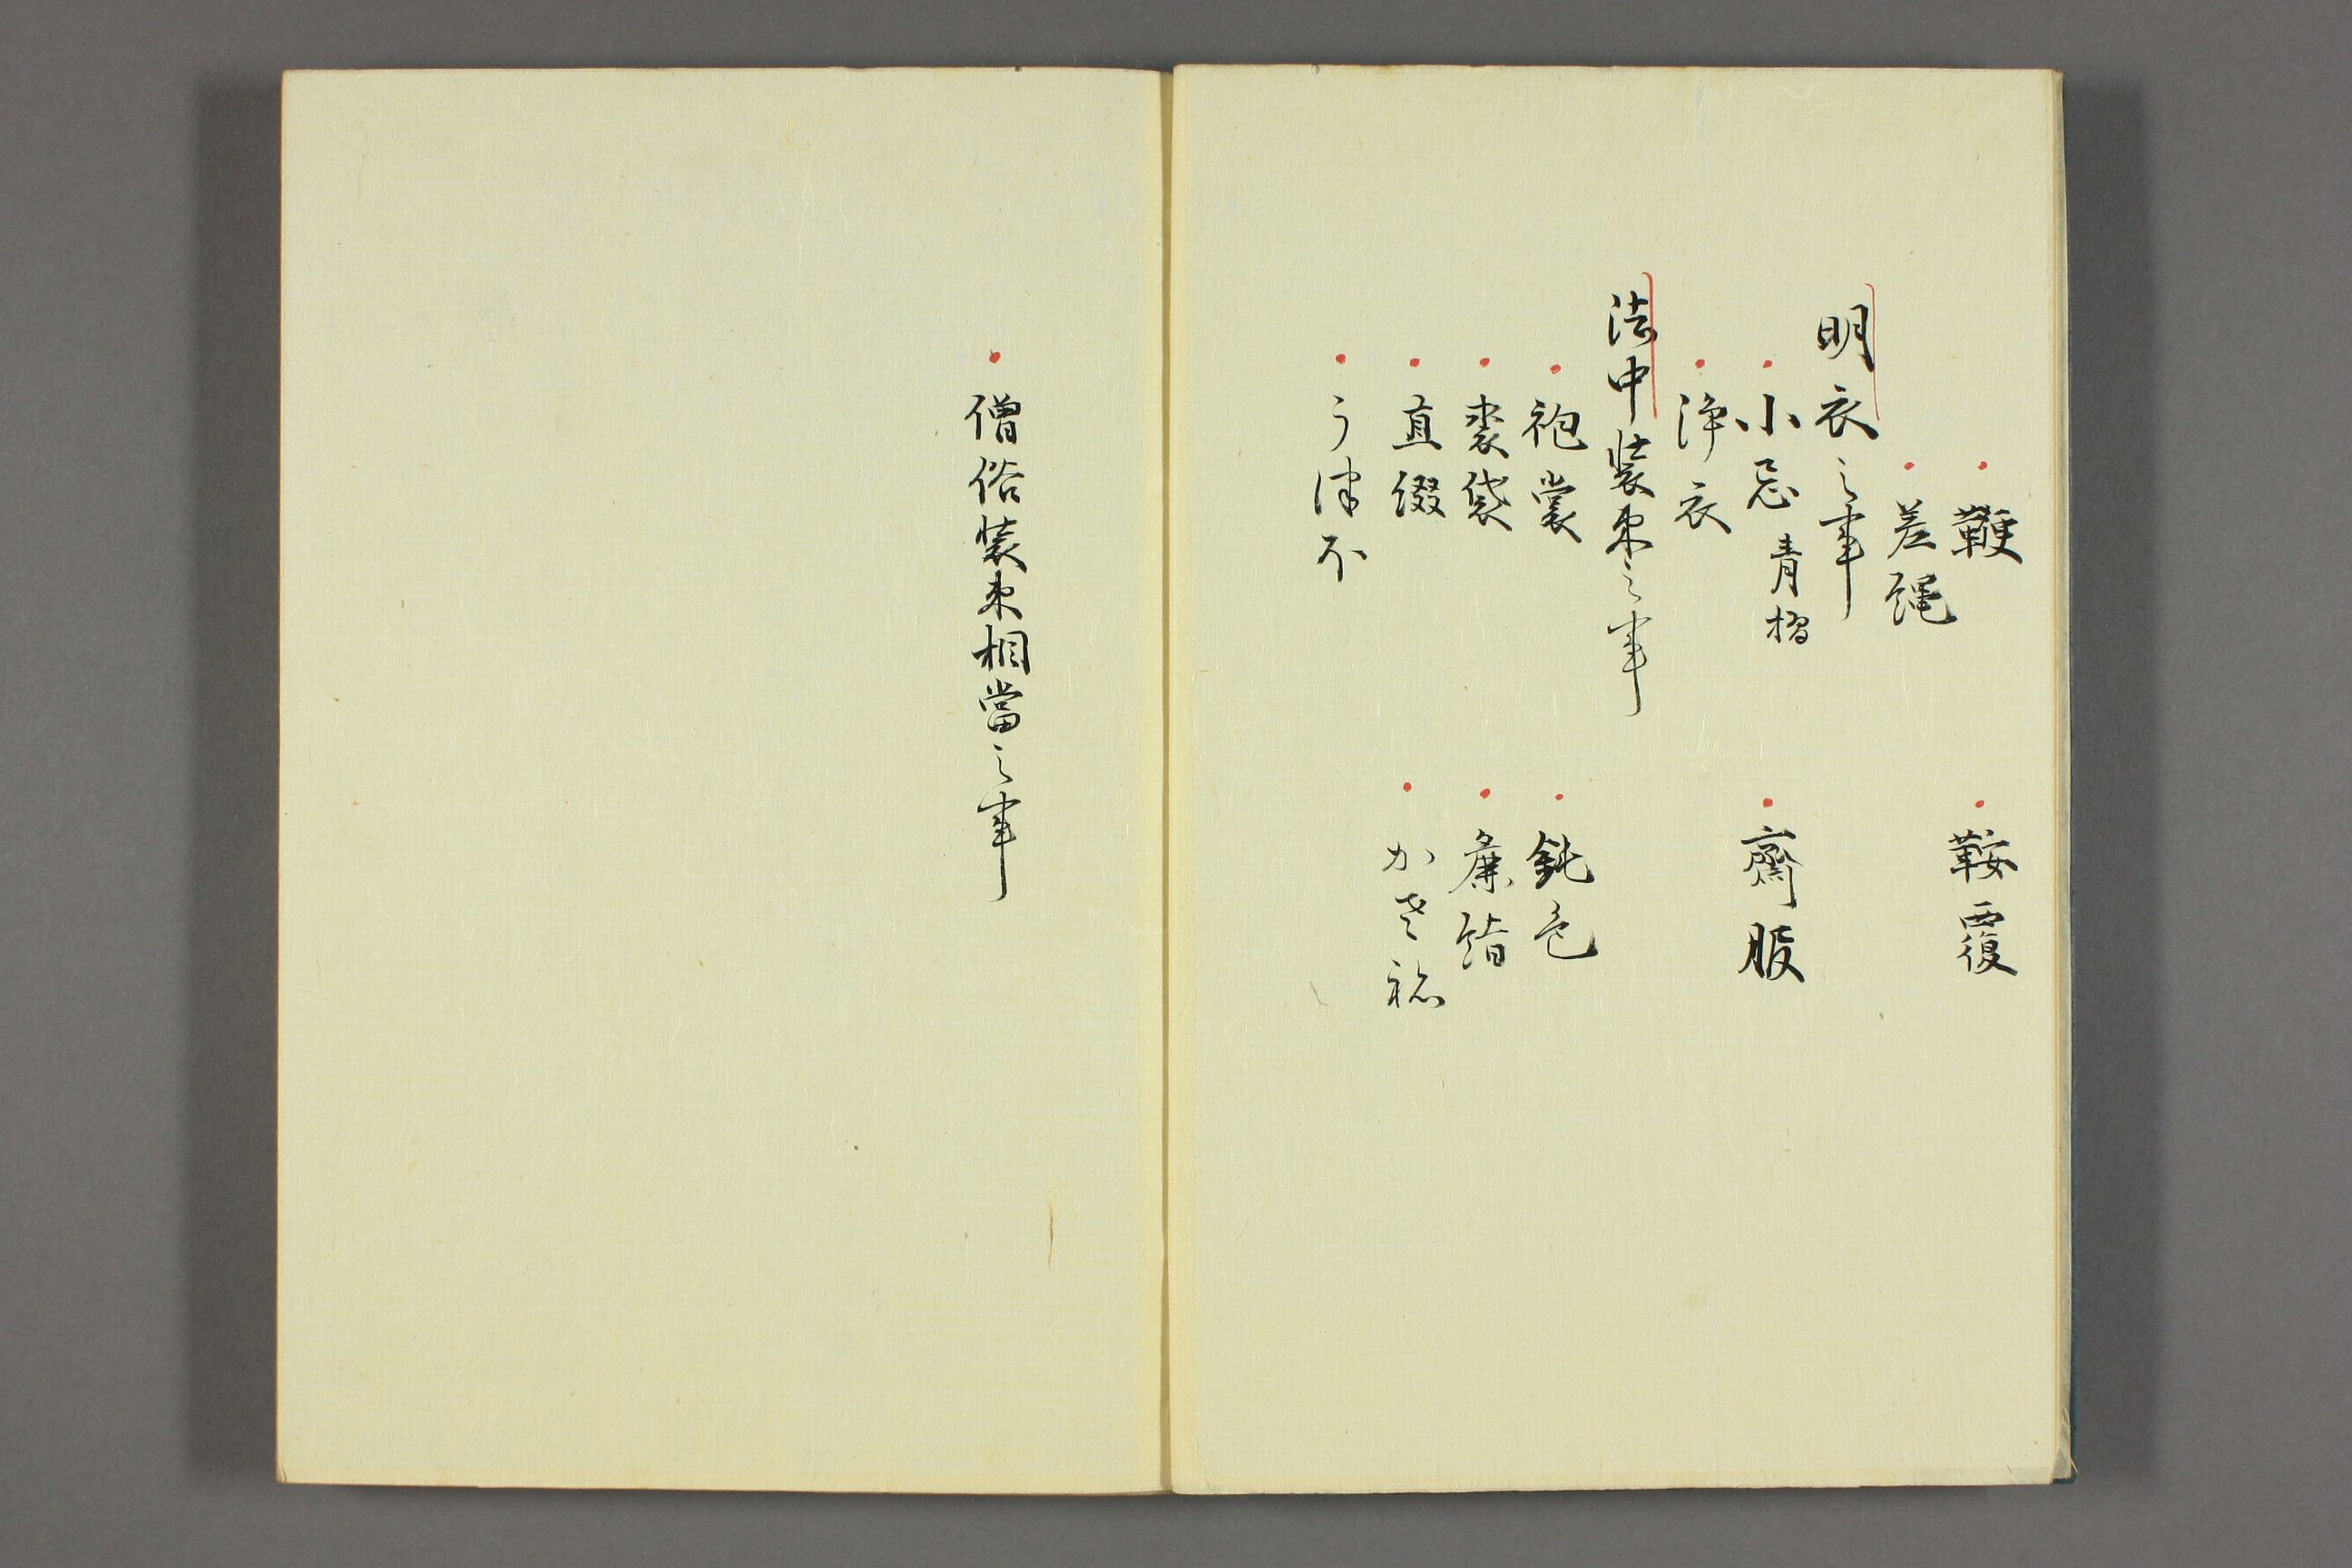 鞭　鞍覆
差縄
明衣之事
小忌 青摺　齋服
浄衣
法中装束之事
袍裳　鈍色
裘袋　鼻
直綴　かさね
うつほ
僧俗装束相當之事